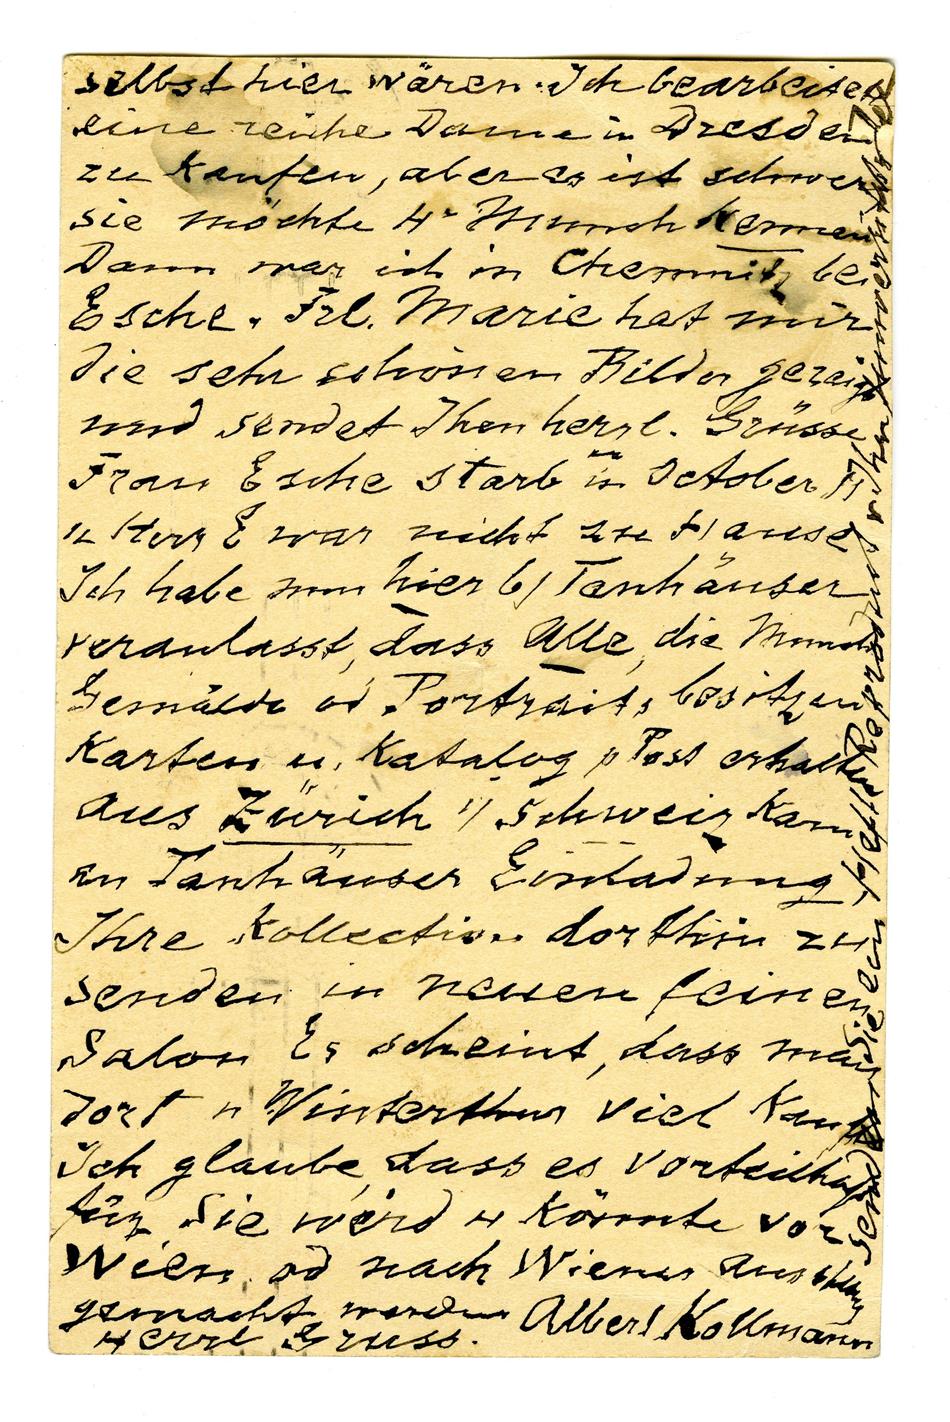 selbst hier wären. Ich bearbeitet
eine reiche Dame in Dresden
zu Kaufen, aber es ist schwer
sie möchte Munch Kennen
Dann war ich in Chemnitz bei
Esche. Frl. Marie hat mir
die sehr schönen Bilder gezeigt
und sendet Ihen herzl. Grüsse
Frau Esche starb in October
u Herr E war nicht zu Hause
Ich habe nun hier b/ Tanhäuser
veranlasst, dass Alle, die Munch
Gemälde od Portraits besitzen
Karten u. Katalog p Post erhalten
aus Zürich i/ Schweiz kam
an Tanhäuser Einladung
Ihre Kollection dorthin zu
senden in neuen feinen
Salon Es scheint, dass man
dort u Winterthur viel Kauft
Ich glaube, dass es vorteilhaft
für Sie wörd u Könnte vor
Wien od nach Wiener Ausstllung
gemacht werden Albert Kollmann
Herzl Gruss.
Senden Sie ein Heft Reproduct v Ihn